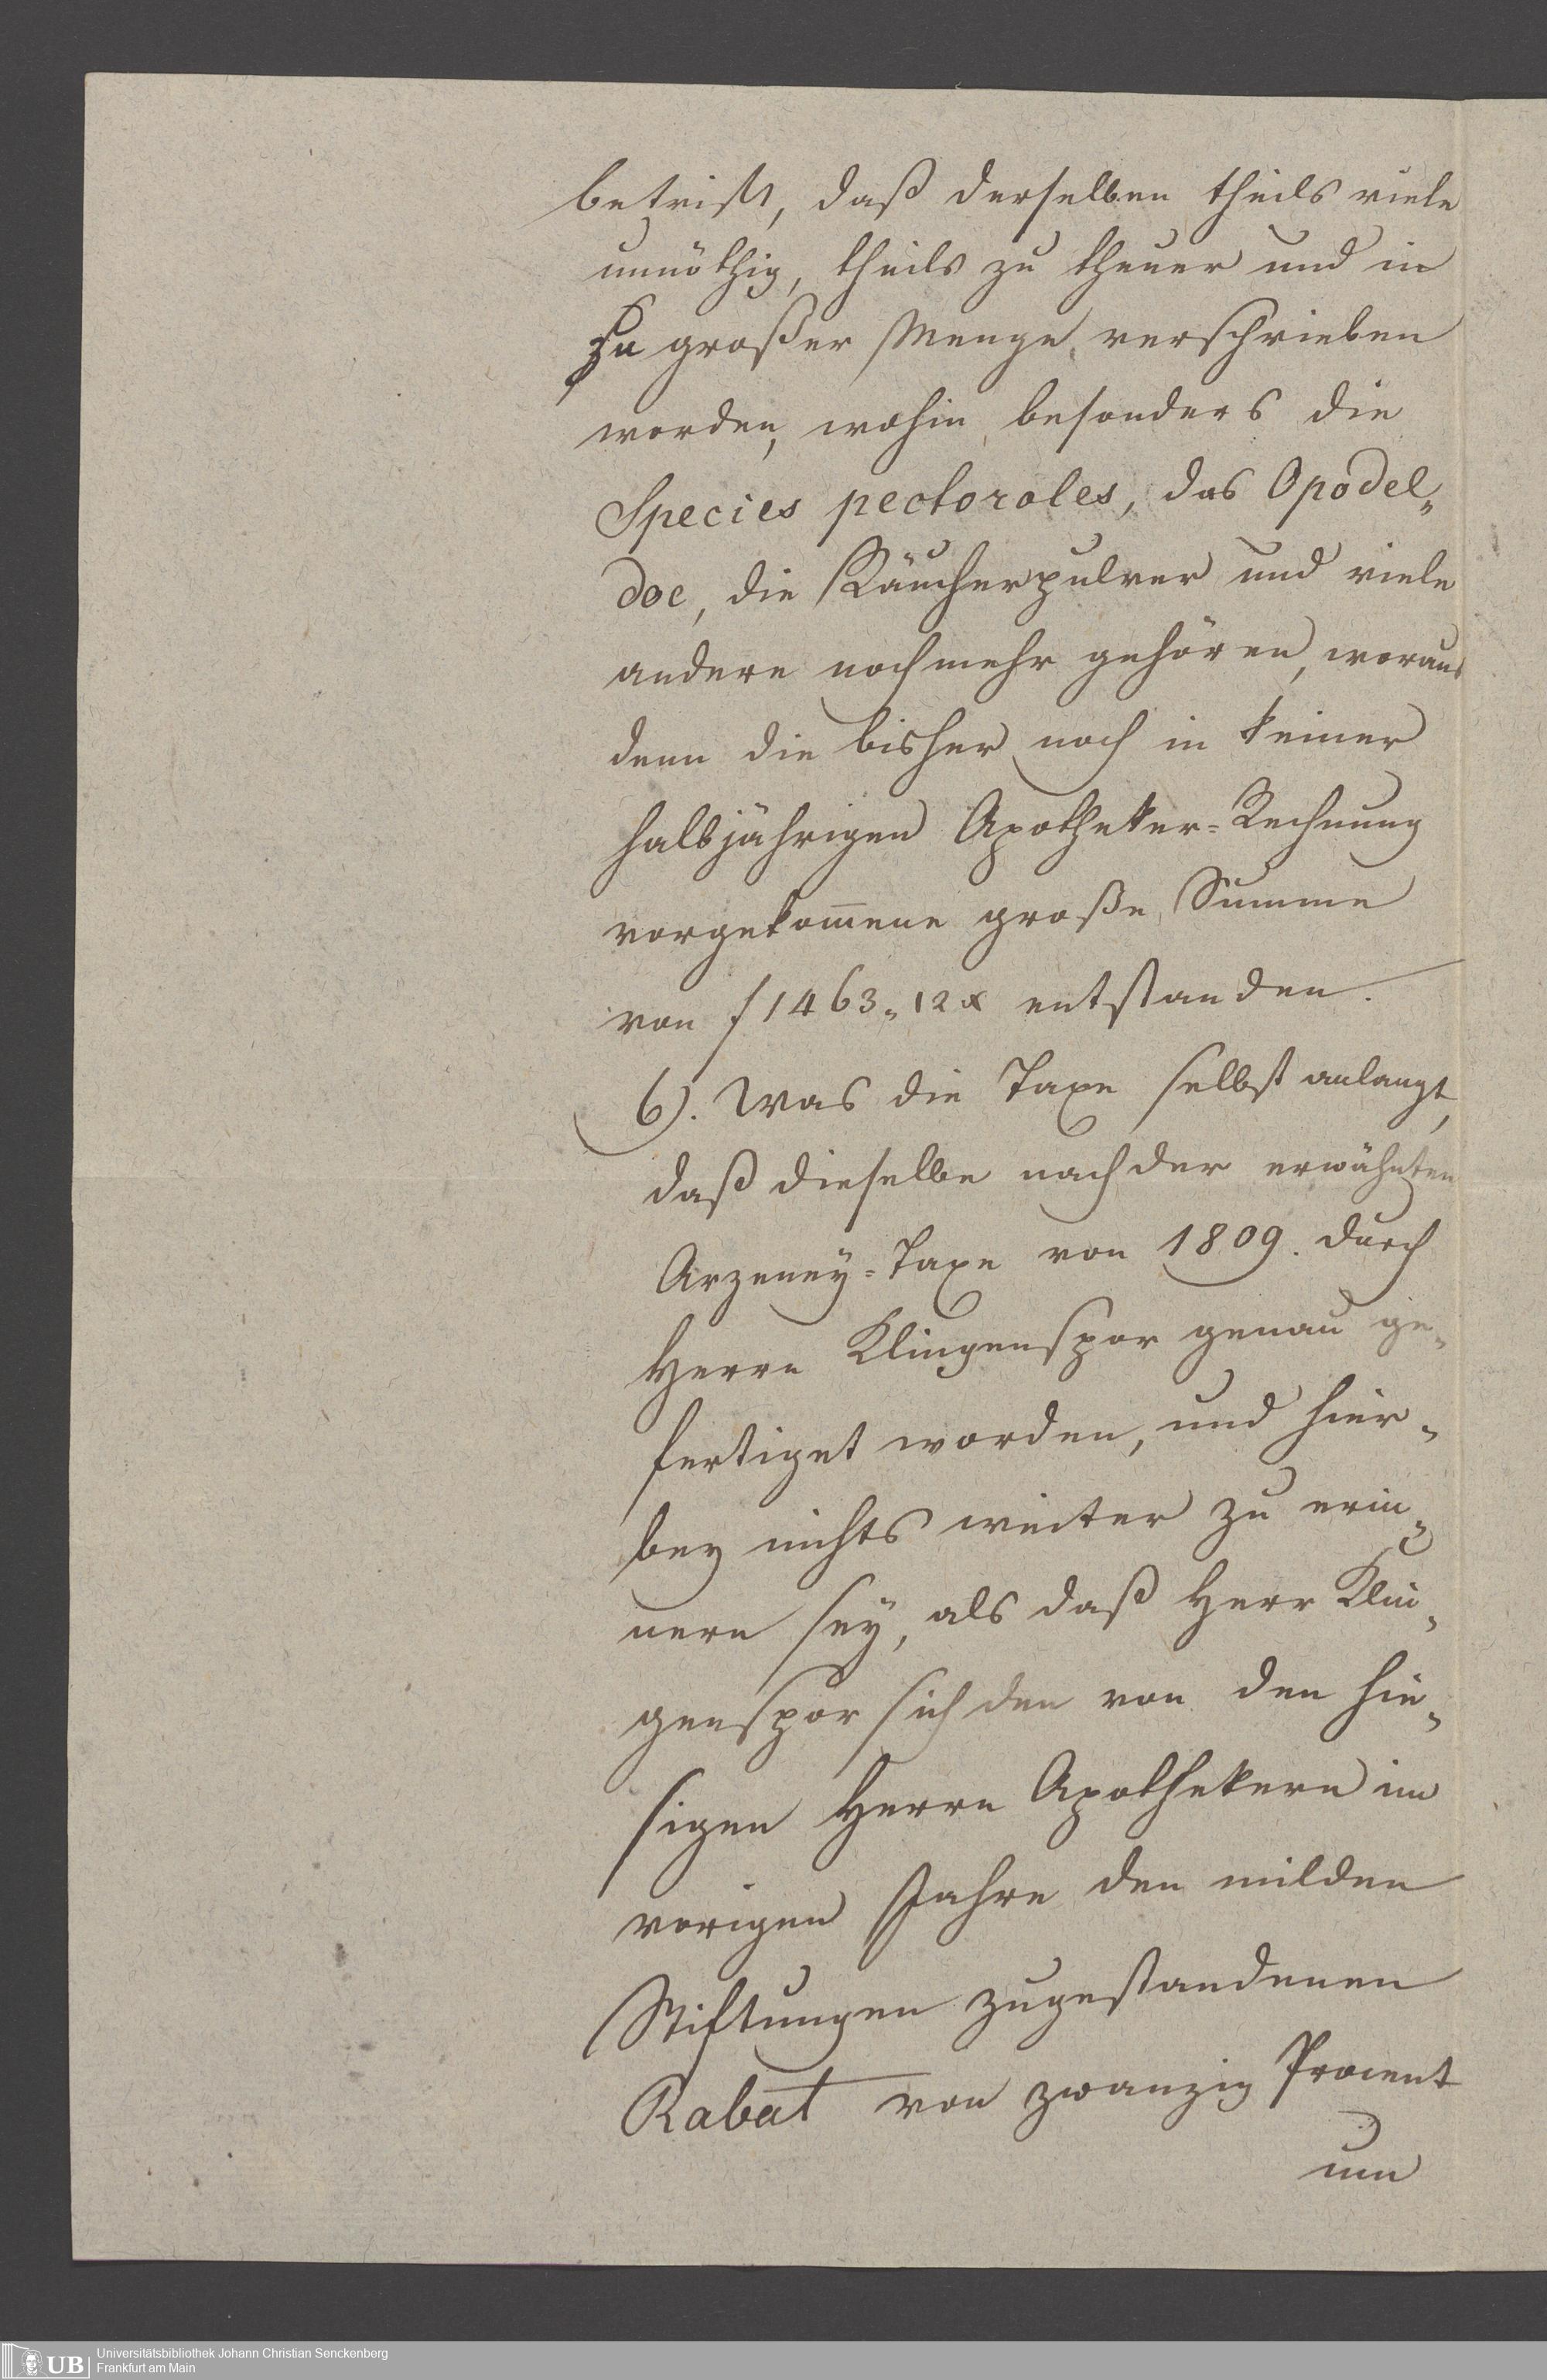 betrift, daß derselben theils viele
unnöthig, theils zu theuer und in
zu großer Menge verschrieben
worden, wohin besonders die
Species pectorales, das Opodel„
doc, die Räucherpulver und viele
andere noch mehr gehören, woraus
denn die bisher noch in keiner
halbjährigen Apotheker=Rechnung
vorgekom̅ene große Summe
von f 1463„ 12 x entstanden.
6). Was die Taxe selbst anlangt,
daß dieselbe nach der erwähnten
Arzeney=Taxe von 1809. durch
Herrn Klingenspor genau ge„
fertiget worden, und hier„
bey nichts weiter zu erin„
nern sey, als daß Herr Klin„
genspor sich den von den hie„
sigen Herrn Apothekern im
vorigen Jahre den milden
Stiftungen zugestandenen
Rabat von zwanzig Procent
um
UB
Universitätsbibliothek Johann Christian Senckenberg
Frankfurt am Main